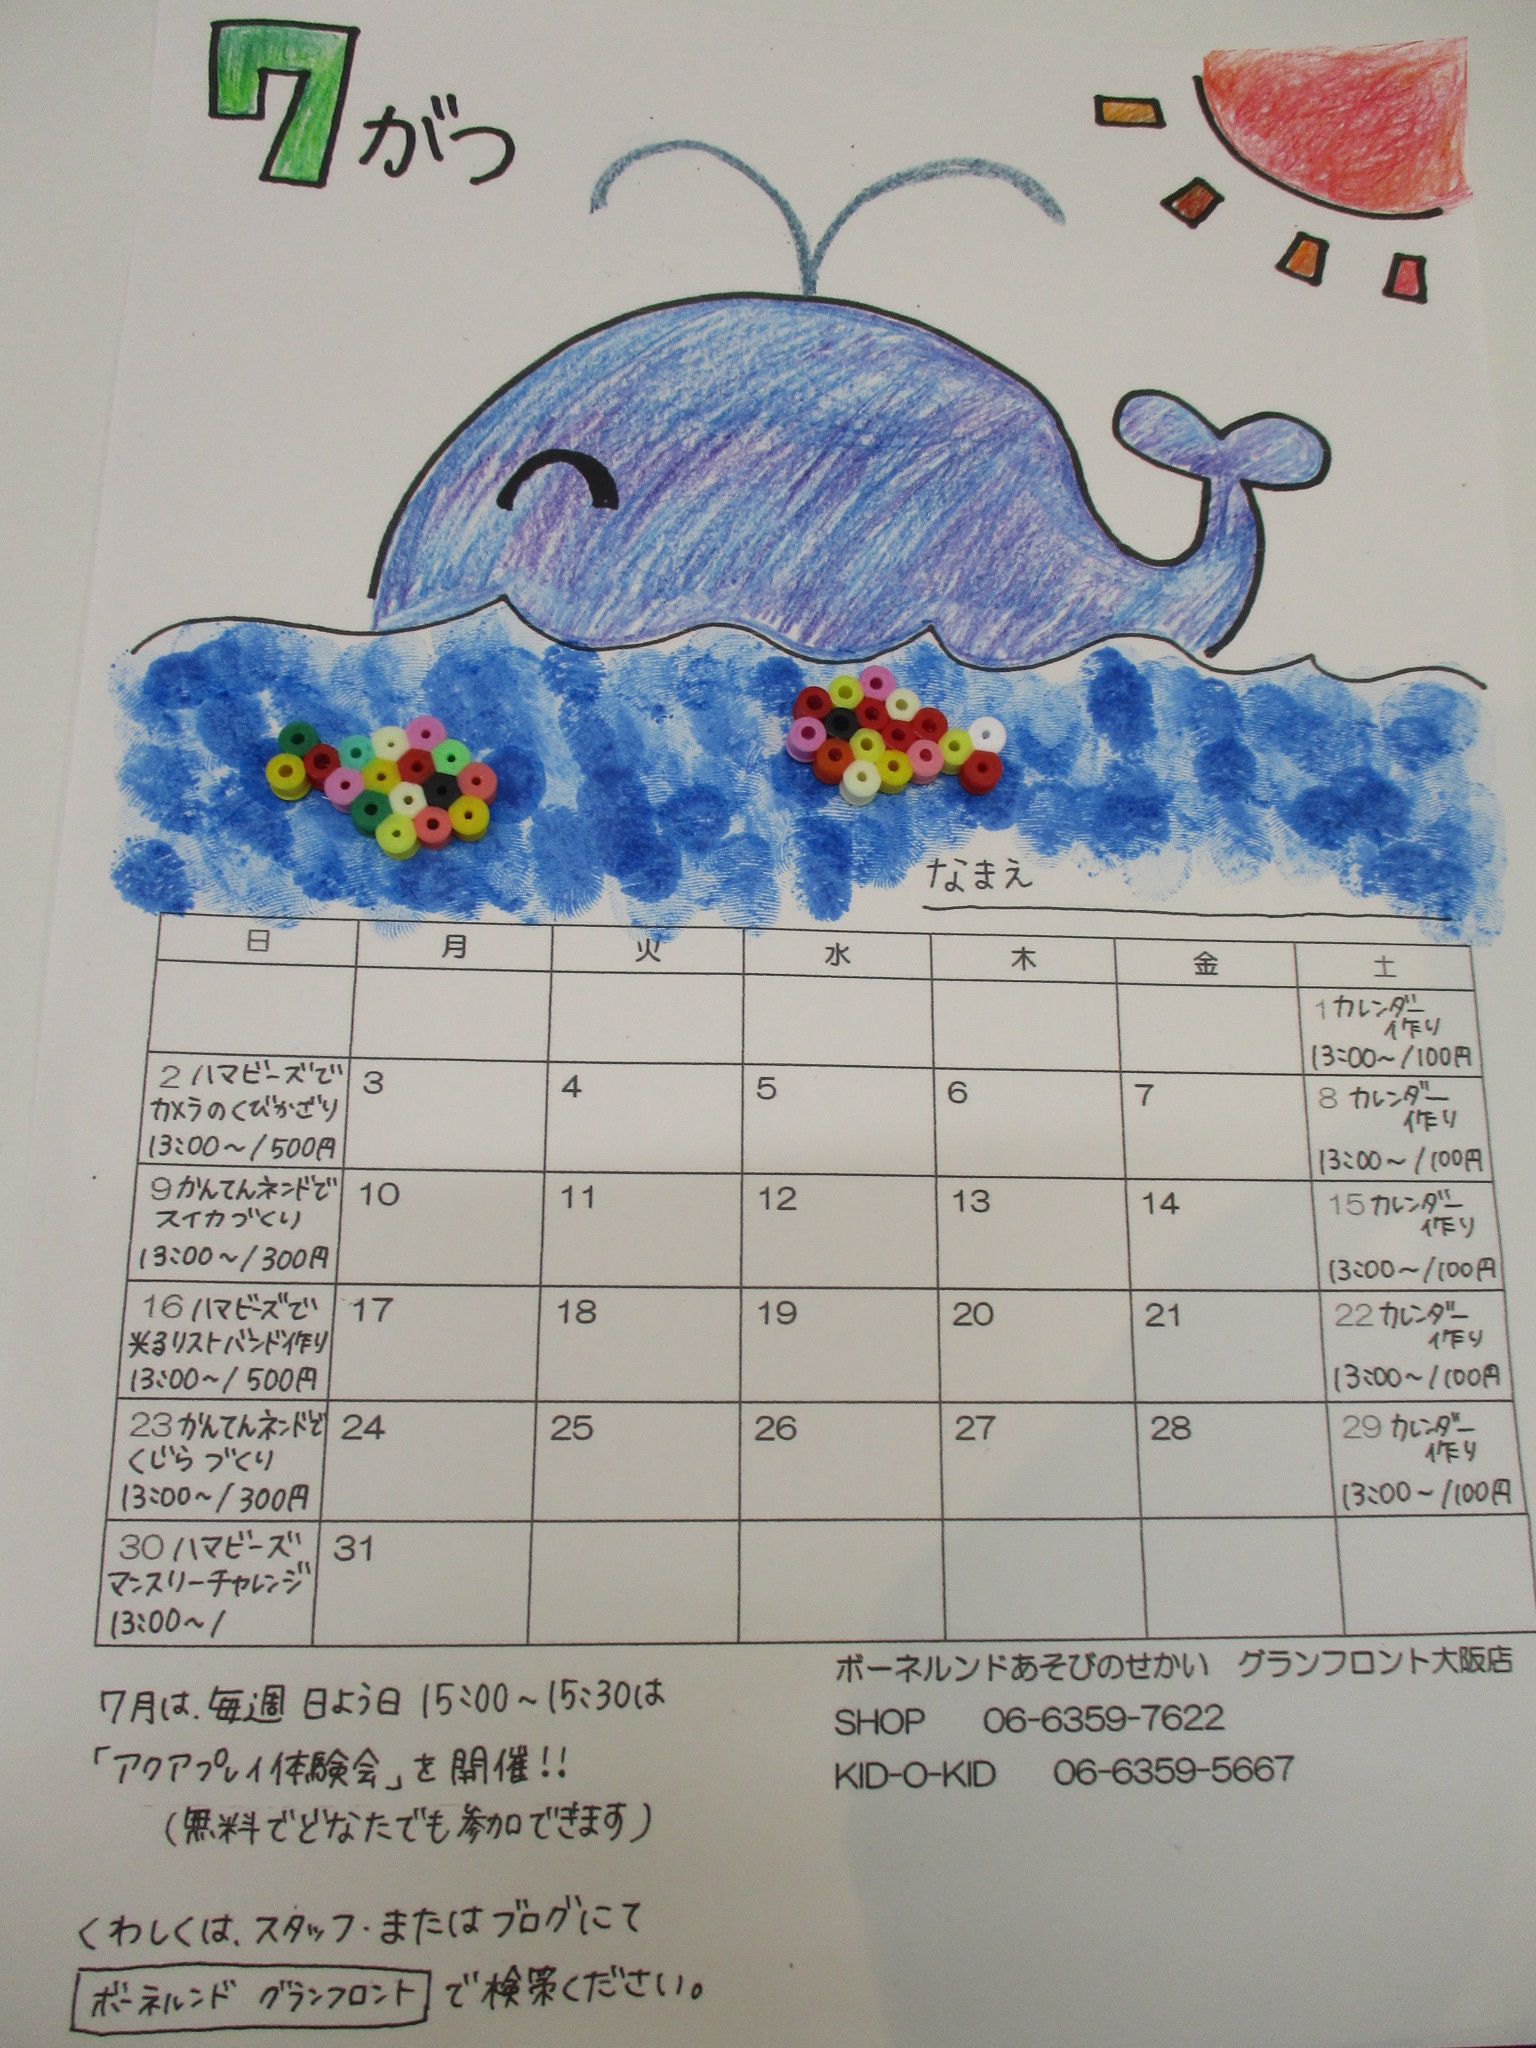 7がつ
なまえ
日 月 火 水 木 金 土
1 カレンダー
作り
13:00～/100円
2 ハマビーズで
カメラのくびかざり
13:00～/500円
3
4
5
6
7
8 カレンダー
作り
13:00～/100円
9 かんてんネンドで
スイカづくり
13:00～/300円
10
11
12
13
14
15 カレンダー
作り
13:00～/100円
16 ハマビーズで
光るリストバンド作り
13:00～/500円
17
18
19
20
21
22 カレンダー
作り
13:00～/100円
23 かんてんネンドで
くじらづくり
13:00～/300円
24
25
26
27
28
29 カレンダー
作り
13:00～/100円
30 ハマビーズ
マンスリーチャレンジ
13:00～/
31
7月は、毎週 日よう日 15:00～15:30は
「アクアプレイ体験会」を開催!!
(無料でどなたでも参加できます)
くわしくは、スタッフ・またはブログにて
ボーネルンド グランフロント で検索ください。
ボーネルンドあそびのせかい グランフロント大阪店
SHOP 06-6359-7622
KID-O-KID 06-6359-5667